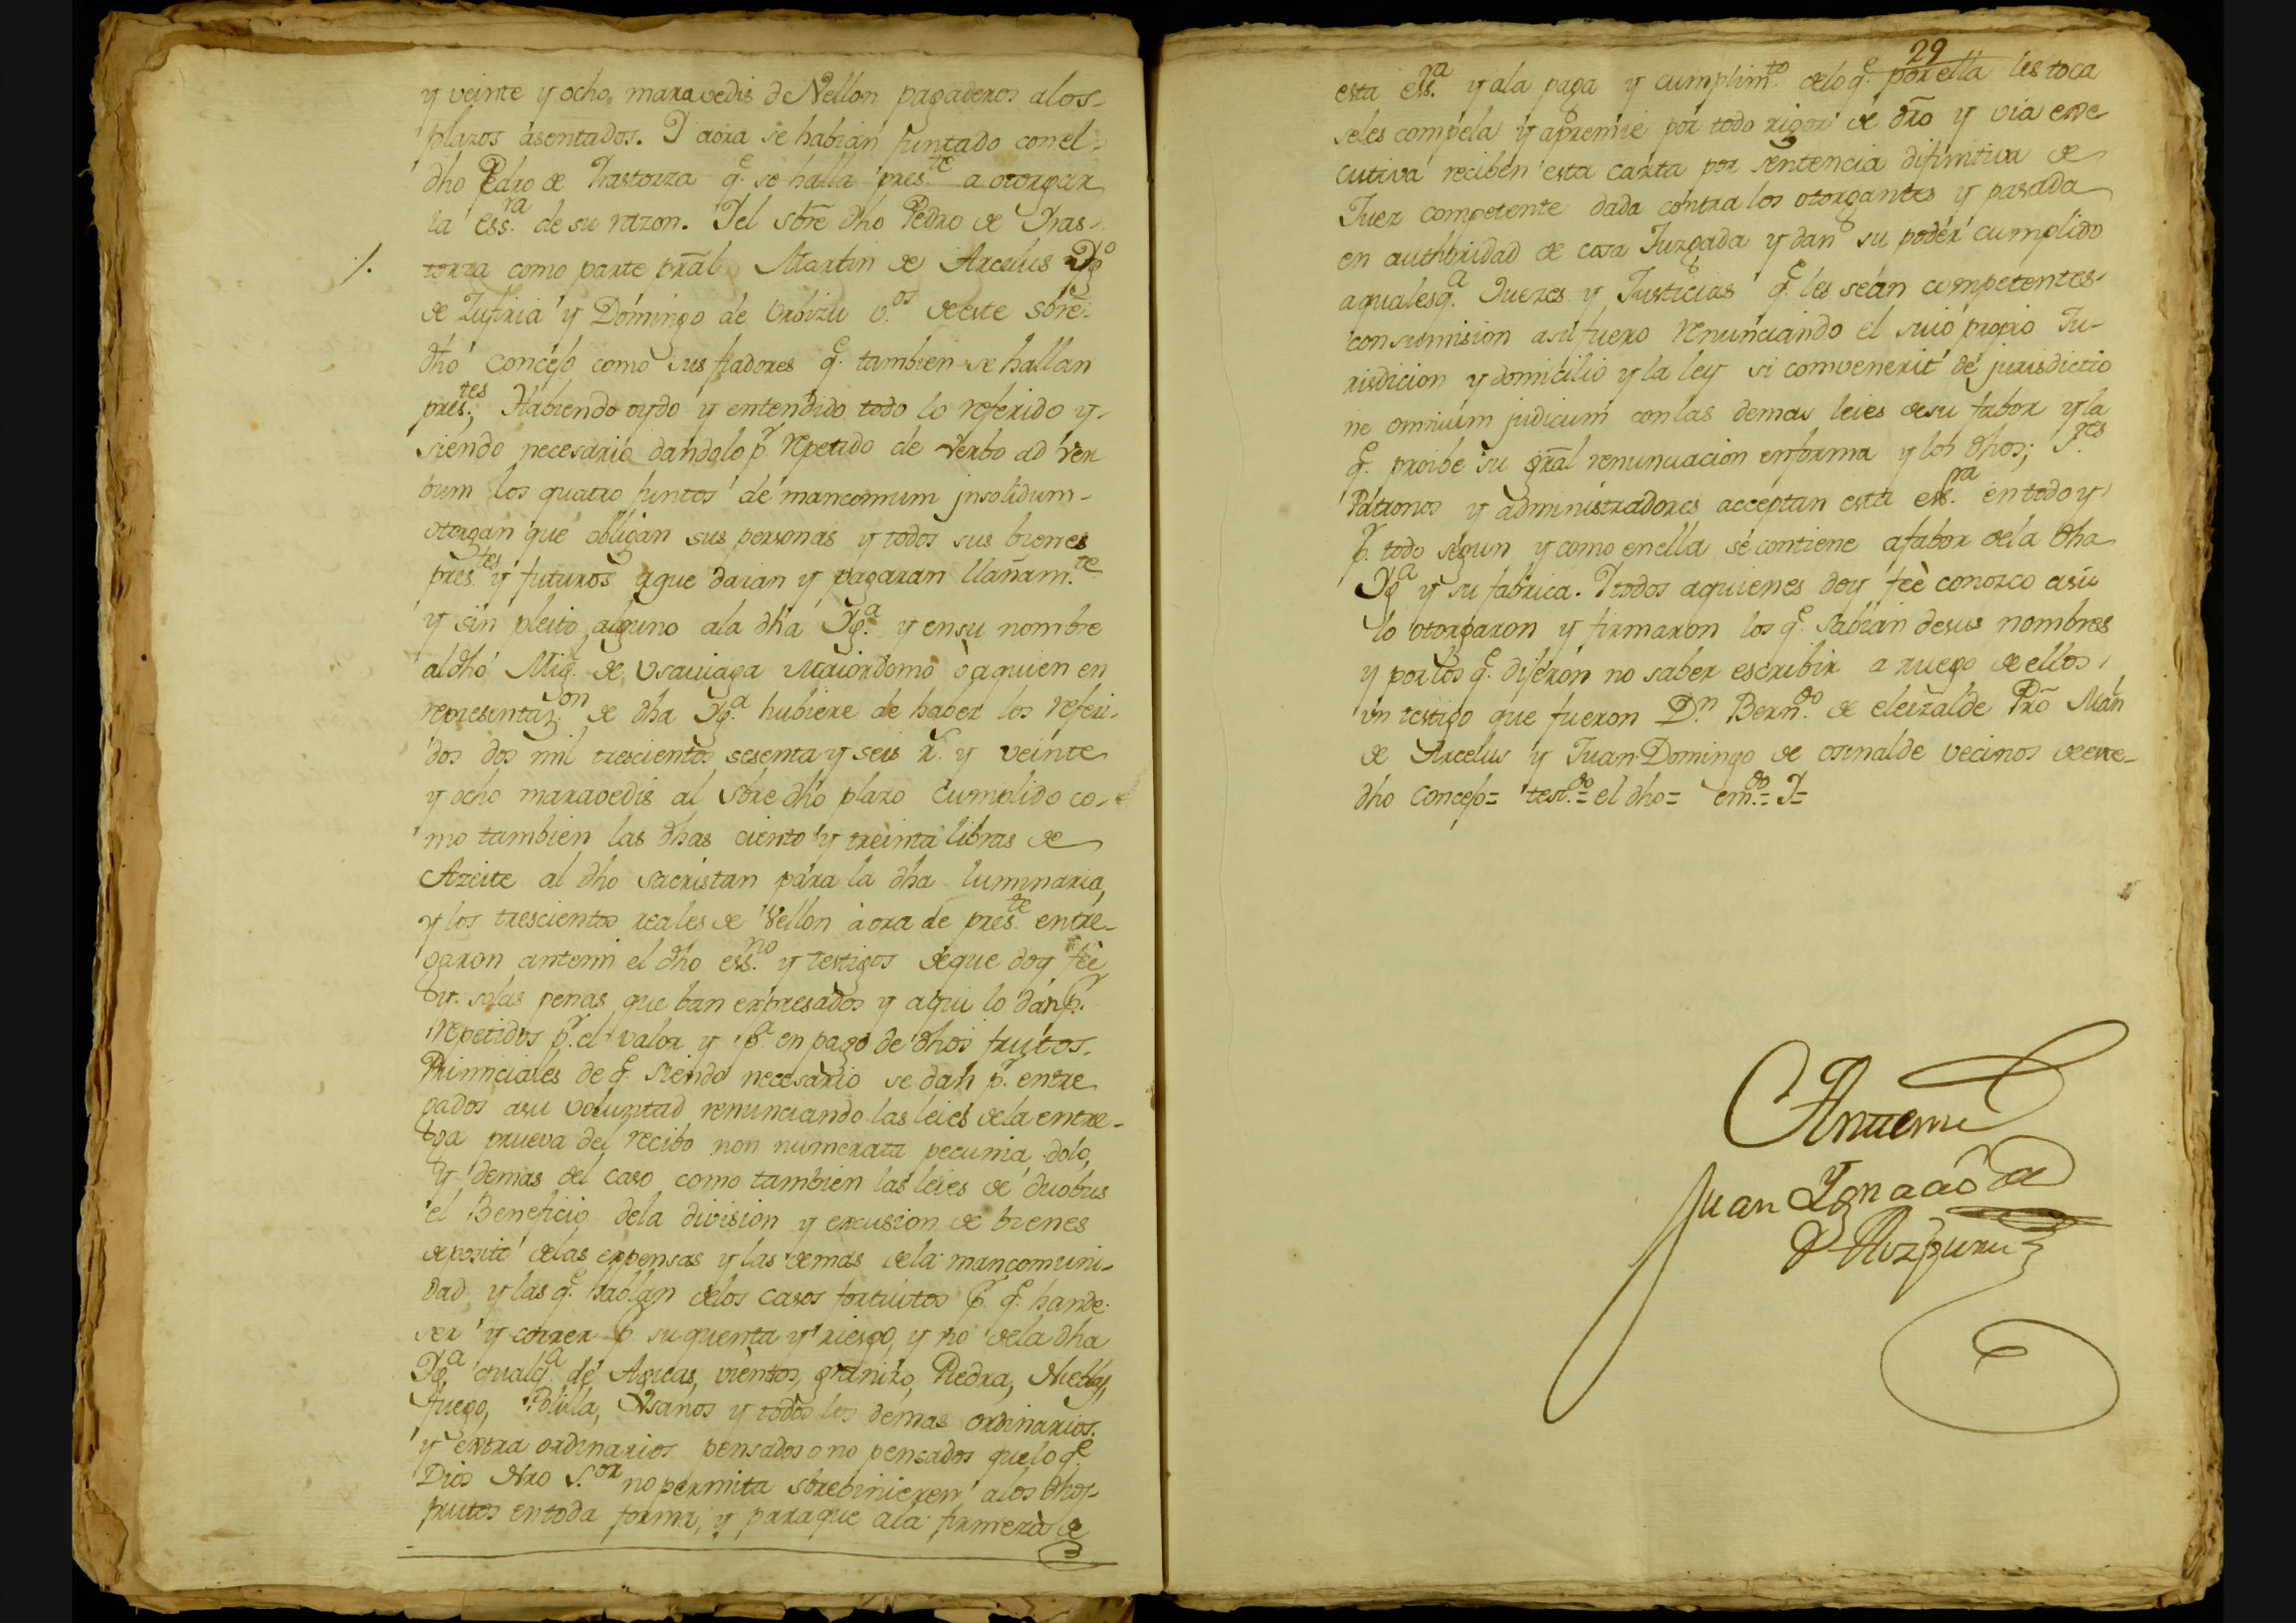 y veinte y ocho maravedis de Vellon pagaderos alos-
plazos asentados. Y aora se habian juntado conel-
dho Pedro de Trastorza q.e se halla pres.te a otorgar
la ess.ra de su razon. Y el sbre dho Pedro de Tras-
/. torza como parte pral Martin de Arcelus
de Zufiria y Domingo de Orbizu v.os de este sbre-
dho concejo como sus fiadores q.e tambien se hallan
pres.tes; Habiendo oydo y entendido todo lo referido y-
siendo necesario dandolo p.r repetido de verbo ad ver
bum los quatro juntos de mancomum jnsolidum-
otorgan que obligan sus personas y todos sus bienes
pres.tes y futuros aque daran y pagaran llanam.te
y sin pleito alguno ala dha Yg.a y ensu nombre
aldho Mig. de Usauiaga Maiordomo ò aquien en
representaz.on de dha Yg.a hubiere de haber los referi-
dos dos mil trescientos sesenta y seis r.s y veinte
y ocho maravedis al sbre dho plazo cumplido co-
mo tambien las dhas ciento y treinta libras de
Azeite al dho sacristan para la dha luminaria,
y los trescientos reales de Vellon àora de pres.te entre-
garon antemi el dho ess.no y testigos deque doy feè
solas penas que ban expresados y aqui lo dan p.r
repetidos p.r el valor y p.a en pago de dhos frutos.
Primiciales de q.e siendo necesario se dan p.r entre
gados asu voluntad renunciando las leies dela entre-
ga prueva del recibo non numerata pecunia dolo,
y demas del caso como tambien las leies de duobus
el Beneficio dela division y excusion de bienes
deposito delas expensas y las demas dela mancomuni-
dad y las q.e hablan delos casos fortuitos p.r q.e hande
ser y correr p.r su quenta y riesgo, y no dela dha
Yg.a qualq.a de Aguas, vientos, granizo, Piedra, Niebla,
fuego, Polilla, Gusanos y todos los demas ordinarios.
y extra ordinarios pensados o no pensados quelo q.e
Dios Nro S.or no permita sbrebinieren alos dhos-
frutos entoda forma; y paraque ala firmeza de
29
esta ess.ra y ala paga y cumplim.to delo q.e por ella les toca
seles compela y apremie por todo rigor de dro y via exe-
cutiva reciben esta carta por sentencia difinitiva de
Juez competente dada contra los otorgantes y pasada
en authoridad de cosa Juzgada y dan su poder cumplido
aqualesq.a Juezes y Justicias q.e les sean competentes-
con sumision asu fuero renunciando el suio propio Ju-
risdicion y domicilio y la ley si comvenerit de jurisdictio
ne omnium judicum conlas demas leies desu fabor y la
q.e proibe su gral renunciacion enforma y los dhos; S.res
Patronos y administradores acceptan esta ess.ra entodo y
p.r todo segun y como enella se contiene afabor dela dha
Yg.a y su fabrica. Y todos aquienes doy feè conozco asi
lo otorgaron y firmaron los q.e sabian desus nombres
y por los q.e dijeron no saber escribir a ruego de ellos
un testigo que fueron D.n Bern.do de eleizalde Pro Mān
de Arcelus y Juan Domingo de osinalde vecinos deeste-
dho concejo= test.do= el dho= em.do= Y=
Antemi
Juan Ygnacio de
Aozpuru